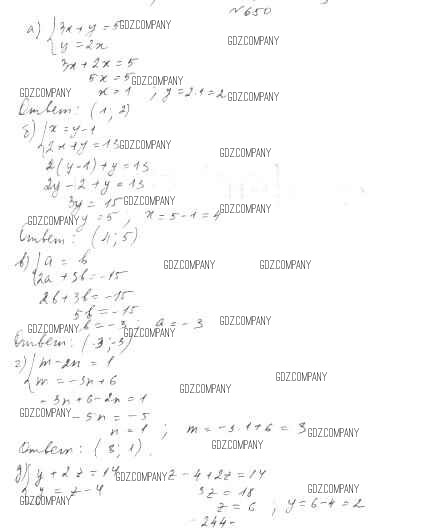 №650
а) { 3x + y = 5 GDZ.COMPANY
y = 2x GDZ.COMPANY
3x + 2x = 5
5x = 5 GDZ.COMPANY
GDZ.COMPANY x = 1 , y = 2·1 = 2 GDZ.COMPANY
Ответ: (1; 2)
б) { x = y - 1
2x + y = 13 GDZ.COMPANY GDZ.COMPANY
2(y-1) + y = 13
2y - 2 + y = 13
3y = 15 GDZ.COMPANY
GDZ.COMPANY y = 5 , x = 5 - 1 = 4 GDZ.COMPANY
Ответ: (4; 5)
в) { a = b GDZ.COMPANY GDZ.COMPANY
2a + 3b = -15
2b + 3b = -15
5b = -15
GDZ.COMPANY b = -3 ; a = -3 GDZ.COMPANY
Ответ: (-3; -3) GDZ.COMPANY
г) { m - 2n = 1
m = -3n + 6 GDZ.COMPANY
-3n + 6 - 2n = 1 GDZ.COMPANY
GDZ.COMPANY -5n = -5
n = 1 ; m = -3·1 + 6 = 3 GDZ.COMPANY
Ответ: (3; 1). GDZ.COMPANY
д) { y + 2z = 14 GDZ.COMPANY z - 4 + 2z = 14
GDZ.COMPANY y = z - 4 3z = 18 GDZ.COMPANY
z = 6 ; y = 6 - 4 = 2
- 244 -